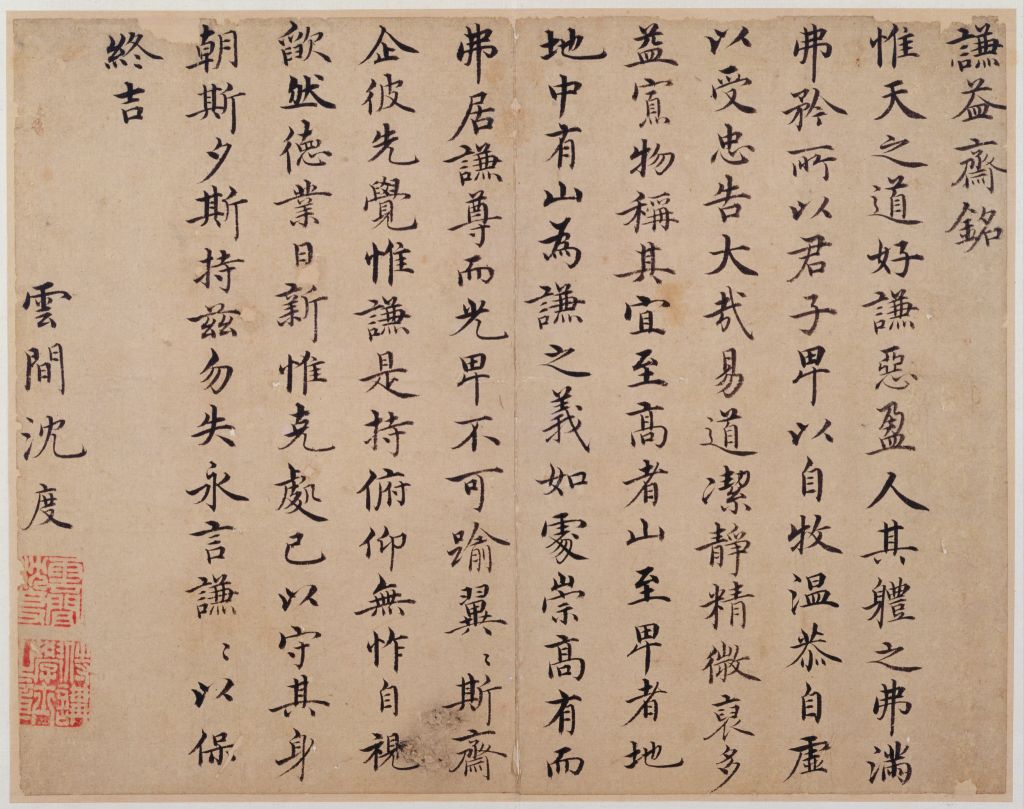 謙益齋銘
惟天之道好謙惡盈人其軆之弗滿
弗矜所以君子卑以自牧温恭自虛
以受忠告大哉易道潔靜精微裒多
益寡物稱其宜至高者山至卑者地
地中有山為謙之義如處崇高有而
弗居謙尊而光卑不可踰翼〻斯齋
企彼先覺惟謙是持俯仰無怍自視
歉然德業日新惟克處己以守其身
朝斯夕斯持茲勿失永言謙〻以保
終吉
雲間沈度